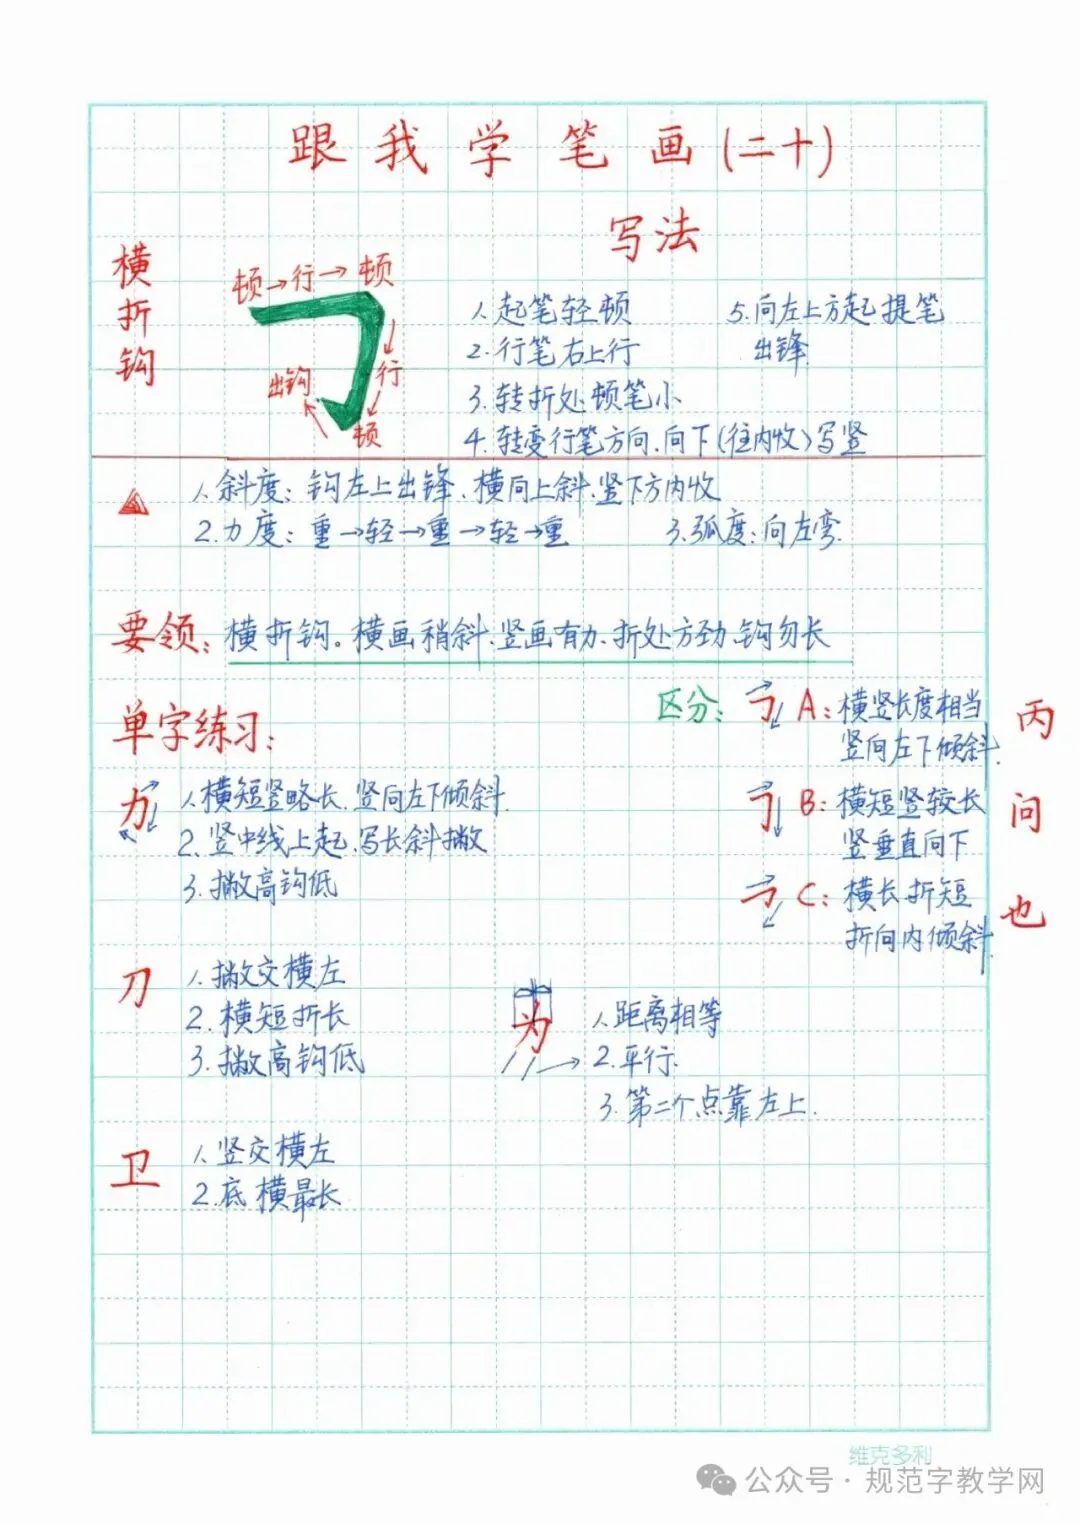 跟我学笔画(二十)
横折钩
写法
顿→行→顿
行
顿
出钩
1.起笔轻顿
2.行笔右上行
3.转折处顿笔小
4.转变行笔方向.向下(往内收)写竖
5.向左上方起提笔
出锋
1.斜度:钩左上出锋.横向上斜.竖下方内收
2.力度:重→轻→重→轻→重
3.弧度:向左弯.
要领:横折钩。横画稍斜.竖画有力、折处方劲.钩勿长
单字练习:
力
1.横短竖略长.竖向左下倾斜.
2.竖中线上起.写长斜撇
3.撇高钩低
区分:
㇆ A:横竖长度相当
竖向左下倾斜.
丙
㇆ B:横短竖较长
竖垂直向下
问
㇆ C:横长折短
折向内倾斜.
也
刀
1.撇交横左
2.横短折长
3.撇高钩低
为
1.距离相等
2.平行.
3.第二个点靠左上.
卫
1.竖交横左
2.底横最长
维克多利
公众号·规范字教学网